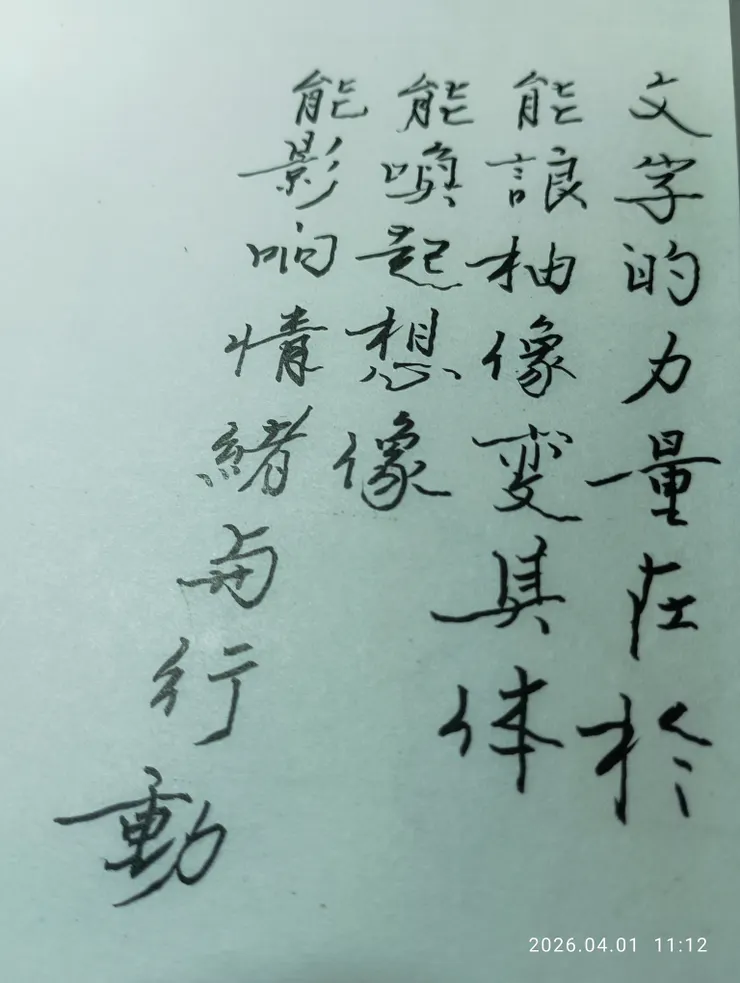 文字的力量在於
能讓抽像變具体
能喚起想像
能影响情緒与行動
2026.04.01 11:12